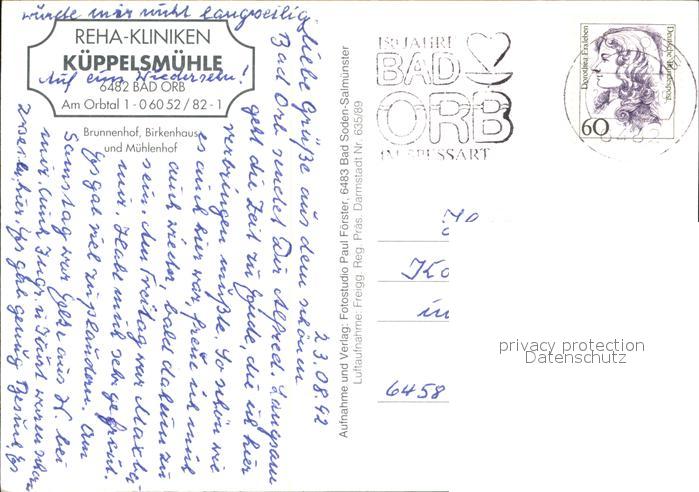 würde mir nicht langweilig
REHA-KLINIKEN
KÜPPELSMÜHLE
Auf ein Wiedersehn!
6482 BAD ORB
Am Orbtal 1 - 0 60 52 / 82 - 1
Brunnenhof, Birkenhaus
und Mühlenhof
23.08.92
Liebe Grüße aus dem schönen
Bad Orb sendet Dir Alfred. Langsam
geht die Zeit zu Ende, die ich hier
verbringen mußte. So schön wie
es auch hier war, freue ich mich
auch wieder, bald daheim zu
sein. Am Freitag war
mir. Habe mich sehr gefreut.
Es gab viel zu plaudern. Am
Samstag war aus H. bei
mir. Und Ingr. u. waren schon
zweimal hier. Es gab genug Besuch. Es
Aufnahme und Verlag: Fotostudio Paul Förster, 6483 Bad Soden-Salmünster
Luftaufnahme: Freigg. Reg. Präs. Darmstadt Nr. 635/89
JAHRE
BAD
ORB
IM SPESSART
Dorothea Erxleben
Deutsche Bundespost
60
in
6458
privacy protection
Datenschutz